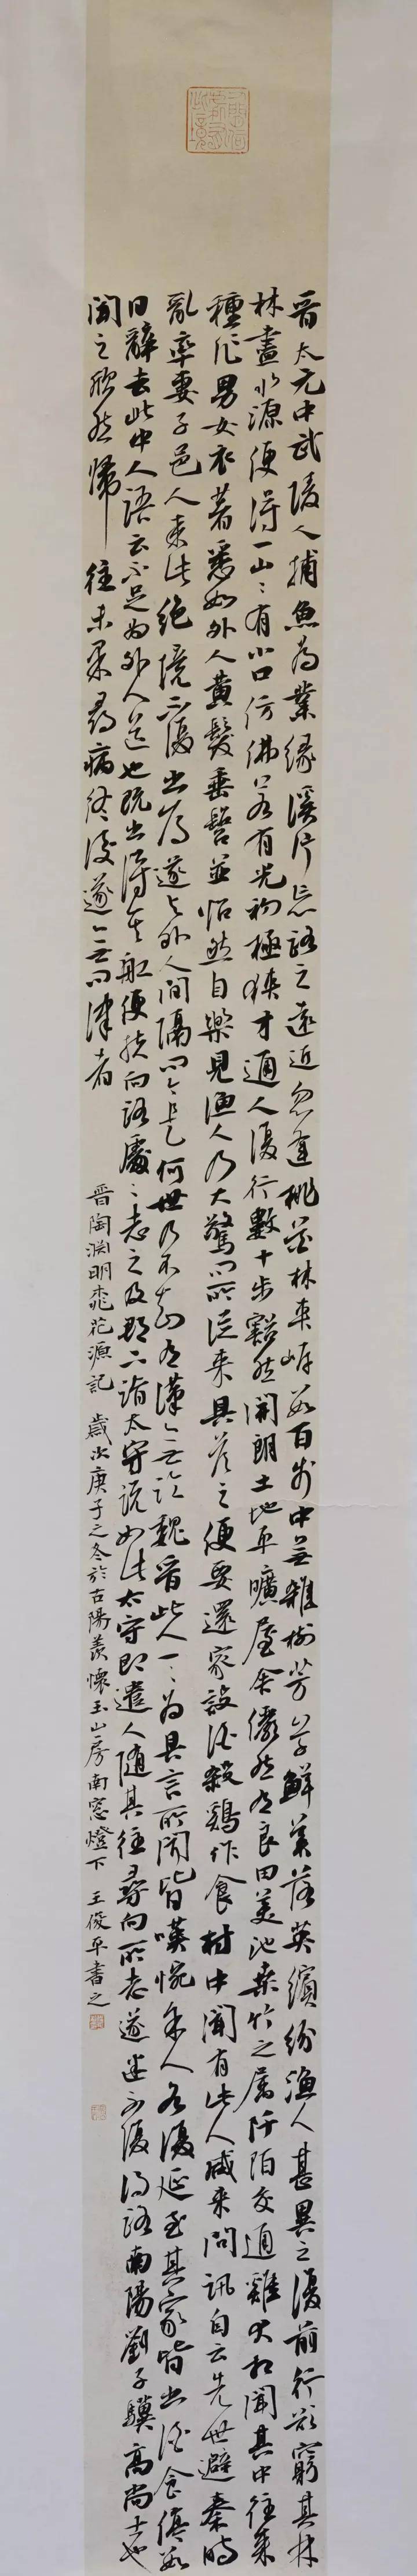 晉太元中武陵人捕魚為業緣溪行忘路之遠近忽逢桃花林夾岸數百步中無雜樹芳草鮮美落英繽紛漁人甚異之復前行欲窮其林
林盡水源便得一山〻有小口彷彿若有光初極狹才通人復行數十步豁然開朗土地平曠屋舍儼然有良田美池桑竹之屬阡陌交通雞犬相聞其中往來
種作男女衣著悉如外人黃髮垂髫並怡然自樂見漁人乃大驚問所從來具答之便要還家設酒殺鷄作食村中聞有此人咸來問訊自云先世避秦時
亂率妻子邑人來此絕境不復出焉遂與外人間隔問今是何世乃不知有漢無論魏晉此人一〻為具言所聞皆嘆惋餘人各復延至其家皆出酒食停數
日辭去此中人語云不足為外人道也既出得其船便扶向路處〻志之及郡下詣太守說如此太守即遣人隨其往尋向所志遂迷不復得路南陽劉子驥高尚士也
聞之欣然歸往未果尋病終後遂無問津者
晉陶淵明桃花源記 歲次庚子之冬於古陽羨懷玉山房南窓燈下 王俊平書之